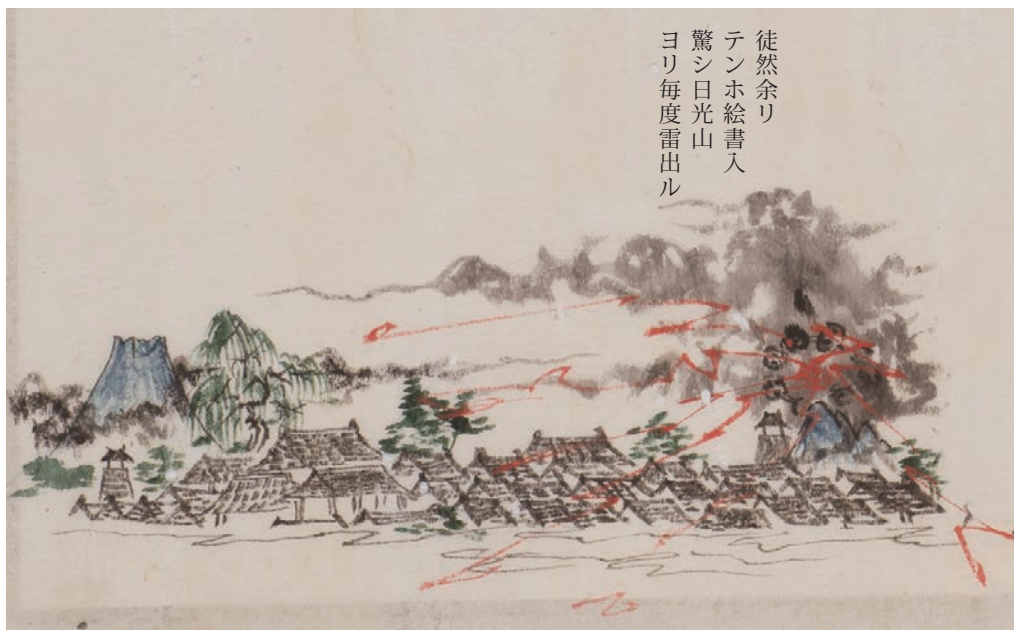 徒然余リ
テンホ絵書入
驚シ日光山
ヨリ毎度雷出ル